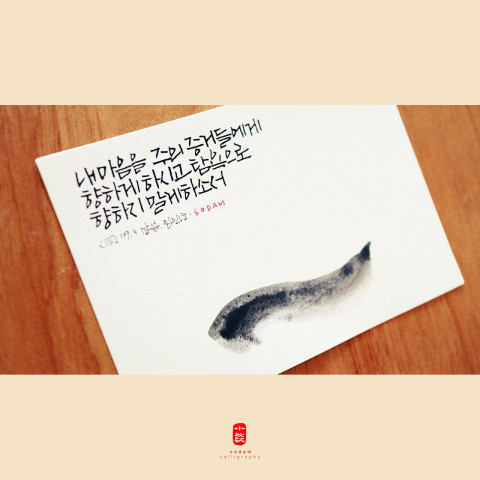 내마음을 주의 증거들에게
향하게하시고 탐욕으로
향하지 말게하소서
말씀. SODAM
小
sodam
calligraphy